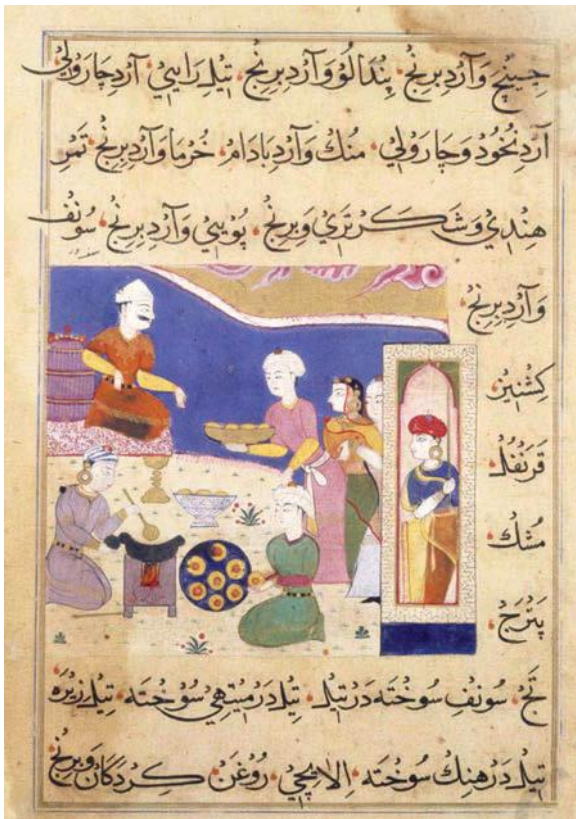 چینچ وآرد برنج پندالو وآرد برنج تیل رایی آرد چارولی
آرد نخود وچارولی منك وآرد بادام خرما وآرد برنج تمر
هندی وشکر تری وبرنج پویی وآرد برنج سونف
وآرد برنج
کشنیز
قرنفل
مشك
پترج
تج سونف سوخته در تیل تیل در میتهی سوخته تیل زیره
تیل در هنك سوخته الایچی روغن کردکان وبرنج